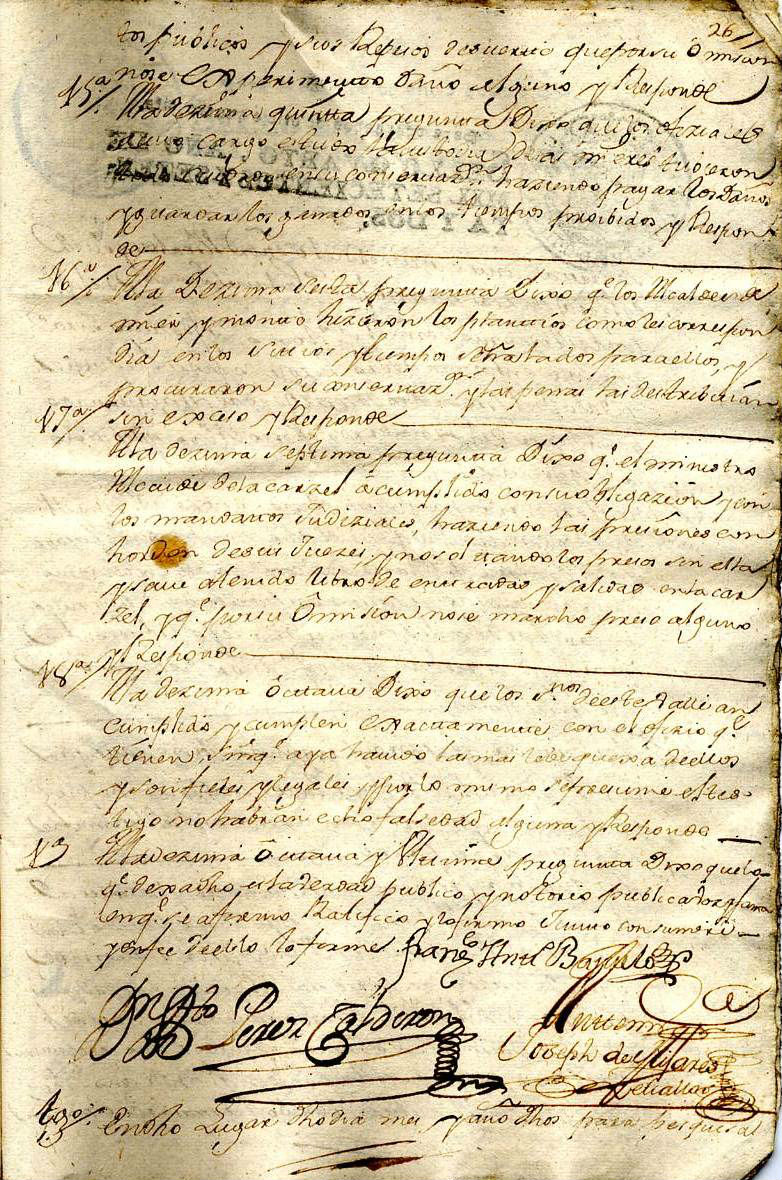 26
tos públicos y sus Reparos de suerte que por su Omision
no se experimento daño alguno y Responde
15ª A la dezima quinta pregunta Dixo que los ofiziales
a cuyo cargo estubo la custodia de las mieses tubieron
en su conservazn haziendo pagar los Daños
y guardar los ganados en los tiempos proibidos y Respon
de
16ª A la Dezima sesta pregunta Dixo q.e los Alcaldes de
mies y monte hizieron los plantios como les correspon
dia en los sitios y tiempos señalados para ellos, y
procuraron su conservazn y las penas las destribuian
sin exceso y Responde
17ª A la dezima septima pregunta Dixo q.e el ministro
Alcaide de la carzel a cumplido con su obligazion y con
los mandatos Judiziales, haziendo las prisiones con
horden de sus Juezes, y no soltando los presos sin ella
y que a tenido libro de entradas y salidas en la car
zel, y q.e por su Omision no se marcho preso alguno
y Responde
18ª A la dezima octava Dixo que los s.nos de este Valle an
cumplido y cumplen exactamente con el ofizio q.e
tienen, sin q.e aya havido la mas lebe quexa de ellos
y son fieles y legales y por lo mismo se presume el tes
tigo no habran echo falsedad alguna y Responde
19 A la dezima octava y Ultima pregunta Dixo que lo
q.e depacho es la verdad publico y notorio publica voz y fama
en q.e se afirmo Ratifico y lo firmo Junto con su merd
y en fee de ello lo firme Franco Antt
Perez Calderon
Antte mi
Joseph de
tgo
En dho Lugar dho dia mes y año dhos para